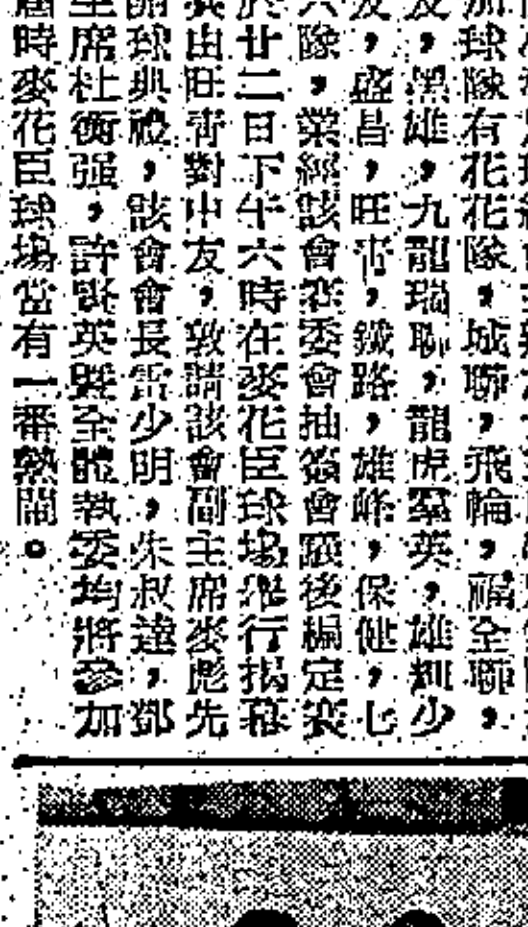 加球隊有花花隊，城聯，飛輪，福全聯，
友，黑雄，九龍瑞聯，龍虎羣英，雄輝少
友，盛昌，旺青，鐵路，雄峰，保健，七
六隊，業經該會競委會抽簽會議後編定裘
於廿二日下午六時在麥花臣球場舉行揭幕
由旺靑對中友，敦請該會副主席麥彪先
開球典禮，該會會長雷少明，朱叔達，鄧
主席杜衡强，許晚英暨全體執委均將參加
屆時麥花臣球場當有一番熱鬧。